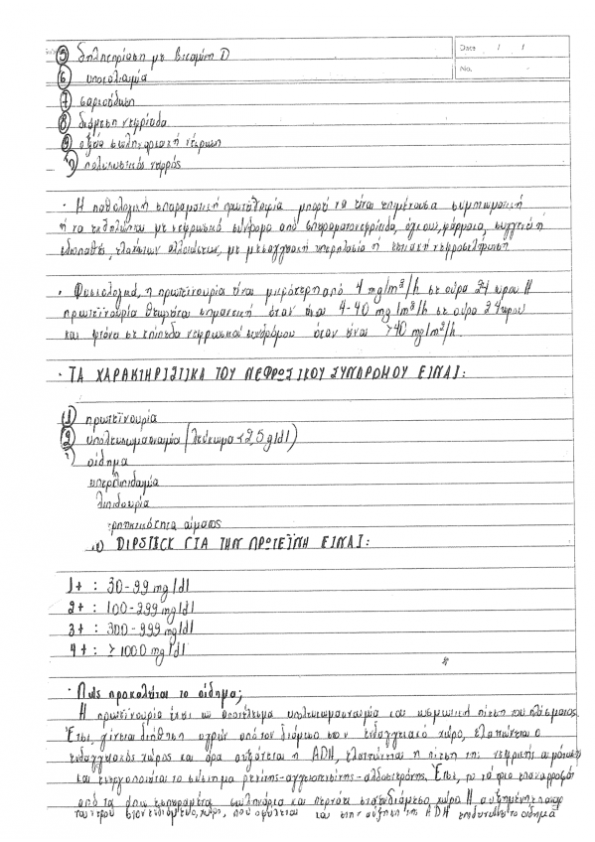 Date / /
No.
⑤ δηλητηρίαση με βιταμίνη D
⑥ υποκαλιαιμία
⑦ σαρκοείδωση
⑧ διάμεση νεφρίτιδα
⑨ οξεία σωληναριακή νέκρωση
πολυκυστικός νεφρός
· Η παθολογική σπειραματική πρωτεϊνουρία μπορεί να είναι επιμένουσα συμπτωματική
ή να εκδηλώνεται με νεφρωσικό σύνδρομο από σπειραματονεφρίτιδα, όγκους, φάρμακα, συγγενή ή
ιδιοπαθές, ελαχίστων αλλοιώσεων, με μεσαγγειακή υπερπλασία ή εστιακή νεφροσκλήρυνση
· Φυσιολογικά, η πρωτεϊνουρία είναι μικρότερη από 4 mg/m²/h σε ούρα 24 ώρου Η
πρωτεϊνουρία θεωρείται σημαντική όταν είναι 4-40 mg/m²/h σε ούρα 24ώρου
και φτάνει σε επίπεδα νεφρωσικού συνδρόμου όταν είναι >40 mg/m²/h.
· ΤΑ ΧΑΡΑΚΤΗΡΙΣΤΙΚΑ ΤΟΥ ΝΕΦΡΩΣΙΚΟΥ ΣΥΝΔΡΟΜΟΥ ΕΙΝΑΙ:
① πρωτεϊνουρία
② υπολευκωματιναιμία (λεύκωμα <2,5 g/dl)
οίδημα
υπερλιπιδαιμία
λιπιδουρία
πηκτικότητα αίματος
DIPSTICK ΓΙΑ ΤΗΝ ΠΡΩΤΕΪΝΗ ΕΙΝΑΙ:
1+ : 30-99 mg/dl
2+ : 100-299 mg/dl
3+ : 300-999 mg/dl
4+ : ≥1000 mg/dl
· Πώς προκαλείται το οίδημα;
Η πρωτεϊνουρία έχει ως αποτέλεσμα υπολευκωματιναιμία και ωσμωτική πίεση του πλάσματος
Έτσι, γίνεται διήθηση υγρών από τον διάμεσο στον ενδαγγειακό χώρο, ελαττώνεται ο
ενδαγγειακός χώρος και άρα αυξάνεται η ADH, ελαττώνεται η πίεση της νεφρικής αιμάτωσης
και ενεργοποιείται το σύστημα ρενίνης-αγγειοτενσίνης-αλδοστερόνης. Έτσι, το νάτριο επαναρροφάται
από τα άπω εσπειραμένα σωληνάρια και περνάει στον διάμεσο χώρο Η αυξημένη
του στον ενδιάμεσο χώρο, που οφείλεται και στην αύξηση της ADH επιδεινώνει το οίδημα